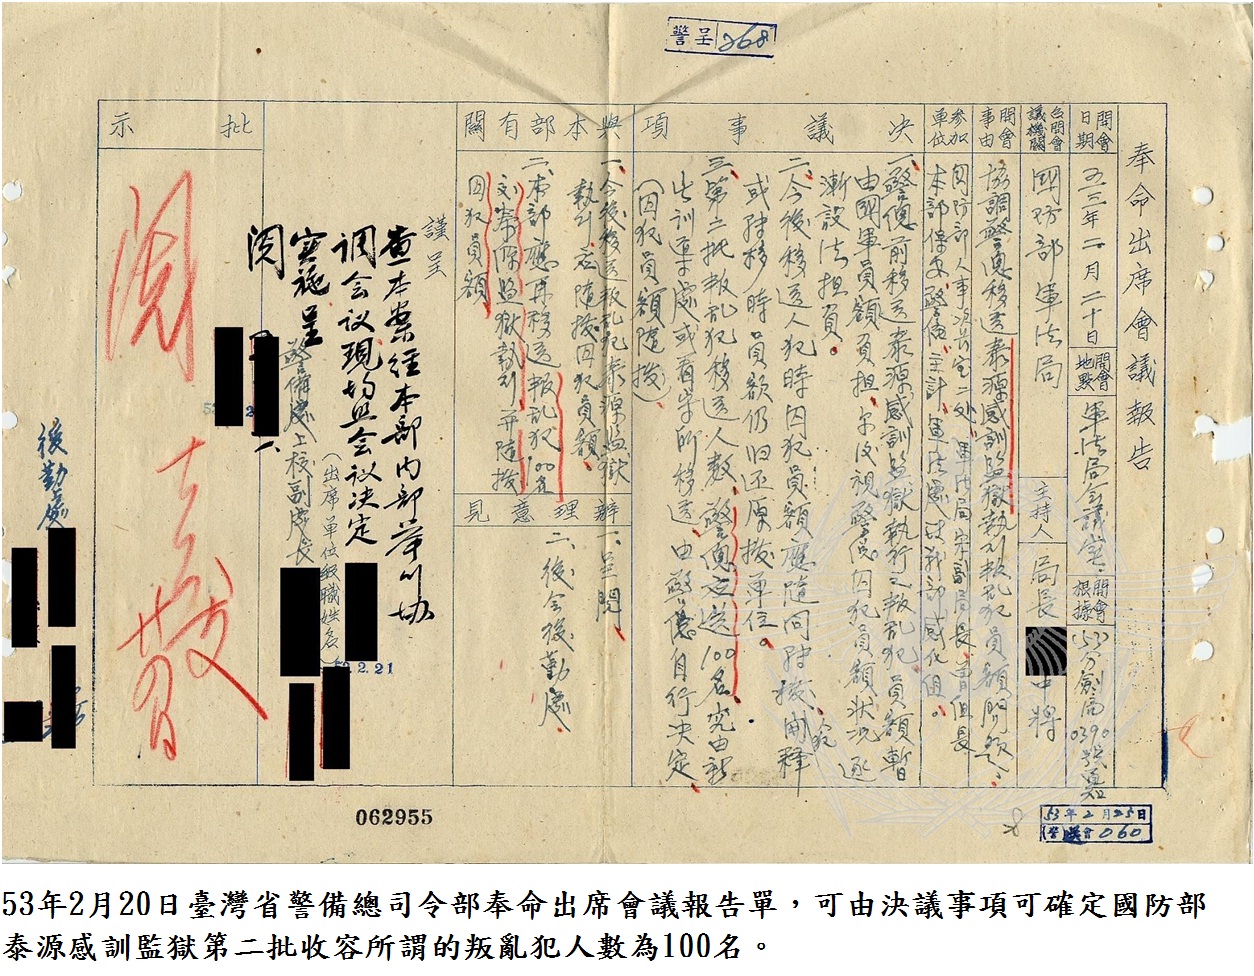 警呈 268
奉命出席會議報告
開會日期
五三年二月二十日
開會地點
軍法局會議室
開會根據
(53)方劍局0390號
召開會議機關
國防部軍法局
主持人
局長
中將
開會事由
協調警總移送泰源感訓監獄執行叛亂犯員額問題
參加單位
國防部人事次長室二處、軍法局宋副局長、曹組長
本部保安、警備、主計、軍法處
決議事項
一、警總前移送泰源感訓監獄執行之叛亂犯員額暫
由國軍員額負担,
視警總囚犯員額狀況逐
漸設法担負。
二、今後移送人犯時囚犯員額應隨同時撥
開釋
或歸移時員額仍旧还原撥單位。
三、第二批叛乱犯移送人數警總送100名究由新
訓導處或看守所移送由警總自行決定
(囚犯員額隨撥)
與本部有關
一、今後後送叛乱犯泰源監獄
執行者隨撥囚犯員額
二、本部應再移送叛乱犯100名
泰源監獄執行并隨撥
囚犯員額
辦理意見
一、呈閱
二、後会後勤處
謹呈
查本案經本部內部举行协
調会议現均照会议决定
實施呈
閱
警備處上校副處長
(出席單位級職姓名)
2.21
批示
閱
後勤處
062955
53年2月25日
060
53年2月20日臺灣省警備總司令部奉命出席會議報告單,可由決議事項可確定國防部
泰源感訓監獄第二批收容所謂的叛亂犯人數為100名。